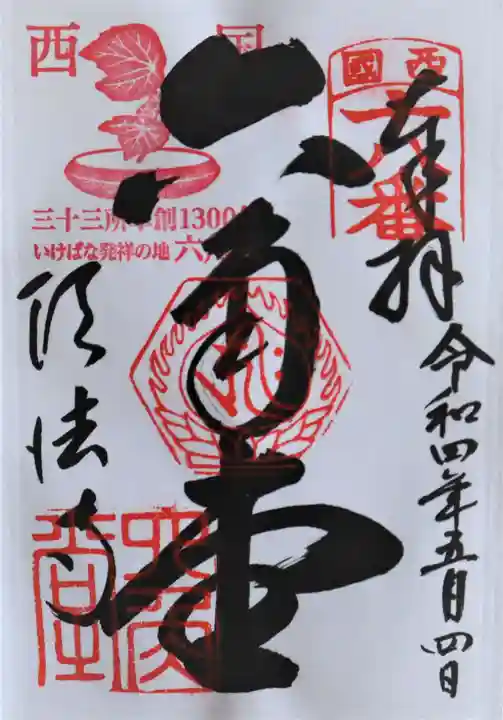 奉拝
令和四年五月四日
西國
十八番
六角堂
西国
三十三所草創1300年
いけばな発祥の地 六角堂
頂法寺
六角堂